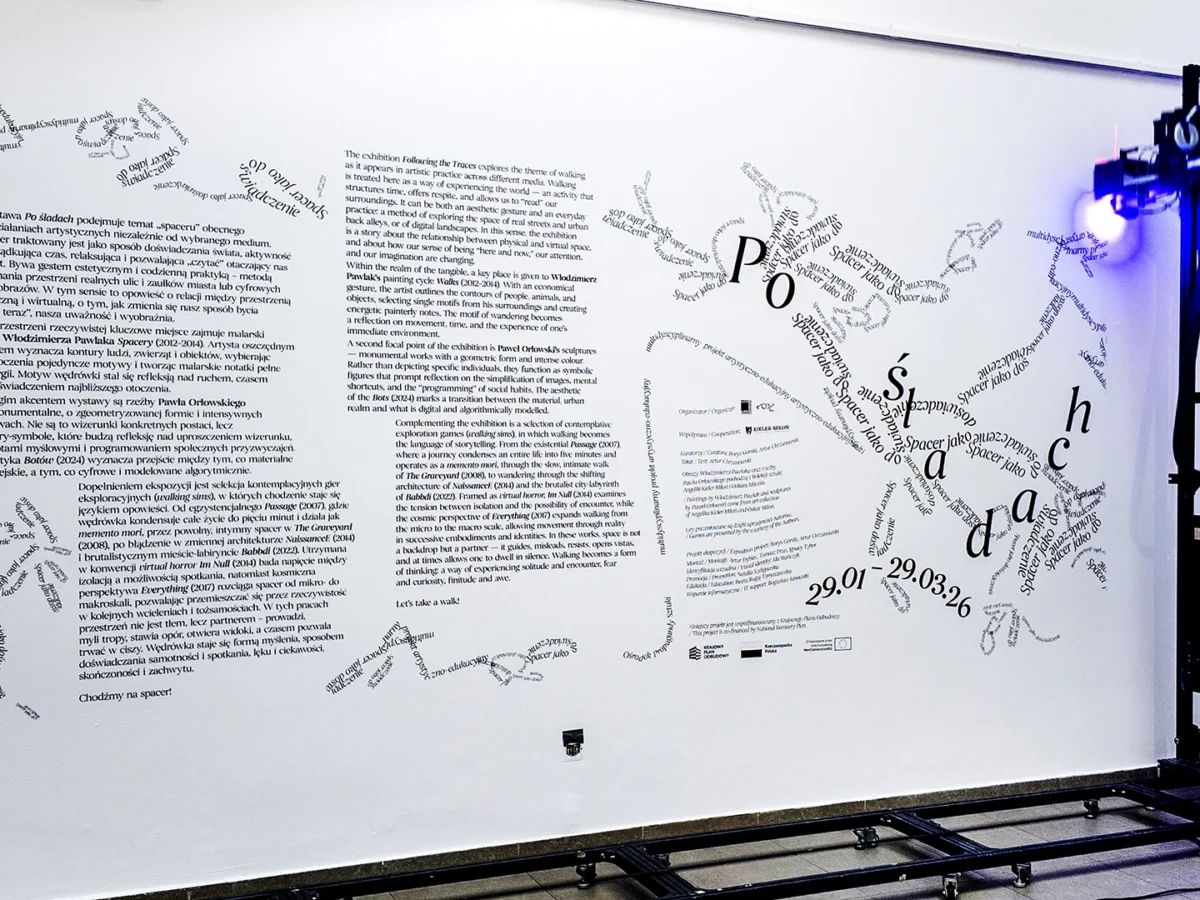 tawa Po śladach podejmuje temat „spaceru” obecnego
iałaniach artystycznych niezależnie od wybranego medium.
er traktowany jest jako sposób doświadczania świata, aktywność
ądkująca czas, relaksująca i pozwalająca „czytać” otaczający nas
t. Bywa gestem estetycznym i codzienną praktyką – metodą
nania przestrzeni realnych ulic i zaułków miasta lub cyfrowych
obrazów. W tym sensie to opowieść o relacji między przestrzenią
zną i wirtualną, o tym, jak zmienia się nasz sposób bycia
teraz”, nasza uważność i wyobraźnia.
rzestrzeni rzeczywistej kluczowe miejsce zajmuje malarski
Włodzimierza Pawlaka Spacery (2012–2014). Artysta oszczędnym
em wyznacza kontury ludzi, zwierząt i obiektów, wybierając
oczenia pojedyncze motywy i tworząc malarskie notatki pełne
rgii. Motyw wędrówki stał się refleksją nad ruchem, czasem
świadczeniem najbliższego otoczenia.
gim akcentem wystawy są rzeźby Pawła Orłowskiego
onumentalne, o zgeometryzowanej formie i intensywnych
wach. Nie są to wizerunki konkretnych postaci, lecz
ry-symbole, które budzą refleksję nad uproszczeniem wizerunku,
otami myślowymi i programowaniem społecznych przyzwyczajeń.
tyka Botów (2024) wyznacza przejście między tym, co materialne
ejskie, a tym, co cyfrowe i modelowane algorytmicznie.
Dopełnieniem ekspozycji jest selekcja kontemplacyjnych gier
eksploracyjnych (walking sims), w których chodzenie staje się
językiem opowieści. Od egzystencjalnego Passage (2007), gdzie
wędrówka kondensuje całe życie do pięciu minut i działa jak
memento mori, przez powolny, intymny spacer w The Graveyard
(2008), po błądzenie w zmiennej architekturze NaissanceE (2014)
i brutalistycznym mieście-labiryncie Babbdi (2022). Utrzymana
w konwencji virtual horror Im Null (2014) bada napięcie między
izolacją a możliwością spotkania, natomiast kosmiczna
perspektywa Everything (2017) rozciąga spacer od mikro- do
makroskali, pozwalając przemieszczać się przez rzeczywistość
w kolejnych wcieleniach i tożsamościach. W tych pracach
przestrzeń nie jest tłem, lecz partnerem – prowadzi,
myli tropy, stawia opór, otwiera widoki, a czasem pozwala
trwać w ciszy. Wędrówka staje się formą myślenia, sposobem
doświadczania samotności i spotkania, lęku i ciekawości,
skończoności i zachwytu.
Chodźmy na spacer!
The exhibition Following the Traces explores the theme of walking
as it appears in artistic practice across different media. Walking
is treated here as a way of experiencing the world — an activity that
structures time, offers respite, and allows us to “read” our
surroundings. It can be both an aesthetic gesture and an everyday
practice: a method of exploring the space of real streets and urban
back alleys, or of digital landscapes. In this sense, the exhibition
is a story about the relationship between physical and virtual space,
and about how our sense of being “here and now,” our attention,
and our imagination are changing.
Within the realm of the tangible, a key place is given to Włodzimierz
Pawlak’s painting cycle Walks (2012–2014). With an economical
gesture, the artist outlines the contours of people, animals, and
objects, selecting single motifs from his surroundings and creating
energetic painterly notes. The motif of wandering becomes
a reflection on movement, time, and the experience of one’s
immediate environment.
A second focal point of the exhibition is Paweł Orłowski’s sculptures
— monumental works with a geometric form and intense colour.
Rather than depicting specific individuals, they function as symbolic
figures that prompt reflection on the simplification of images, mental
shortcuts, and the “programming” of social habits. The aesthetic
of the Bots (2024) marks a transition between the material, urban
realm and what is digital and algorithmically modelled.
Complementing the exhibition is a selection of contemplative
exploration games (walking sims), in which walking becomes
the language of storytelling. From the existential Passage (2007),
where a journey condenses an entire life into five minutes and
operates as a memento mori, through the slow, intimate walk
of The Graveyard (2008), to wandering through the shifting
architecture of NaissanceE (2014) and the brutalist city-labyrinth
of Babbdi (2022). Framed as virtual horror, Im Null (2014) examines
the tension between isolation and the possibility of encounter, while
the cosmic perspective of Everything (2017) expands walking from
the micro to the macro scale, allowing movement through reality
in successive embodiments and identities. In these works, space is not
a backdrop but a partner — it guides, misleads, resists, opens vistas,
and at times allows one to dwell in silence. Walking becomes a form
of thinking: a way of experiencing solitude and encounter, fear
and curiosity, finitude and awe.
Let’s take a walk!
Po śladach
29.01 – 29.03.26
Spacer jako doświadczenie
multidyscyplinarny projekt artystyczno-edukacyjny
Ośrodek Propagandy Sztuki
Organizator / Organizer:
Współpraca / Cooperation: KIELER MILON
Kuratorzy / Curators: Borys Gorski, Artur Chrzanowski
Tekst / Text: Artur Chrzanowski
Obrazy Włodzimierza Pawlaka oraz rzeźby
Pawła Orłowskiego pochodzą z kolekcji sztuki
Angeliki Kieler Milon i Oskara Milona.
/ Paintings by Włodzimierz Pawlak and sculptures
by Paweł Orłowski come from art collection
of Angelika Kieler Milon and Oskar Milon.
Gry prezentowane są dzięki uprzejmości Autorów.
/ Games are presented by the courtesy of the Authors.
Niniejszy projekt jest współfinansowany z Krajowego Planu Odbudowy.
/ This project is co-financed by National Recovery Plan.
KRAJOWY
PLAN
ODBUDOWY
Rzeczpospolita
Polska